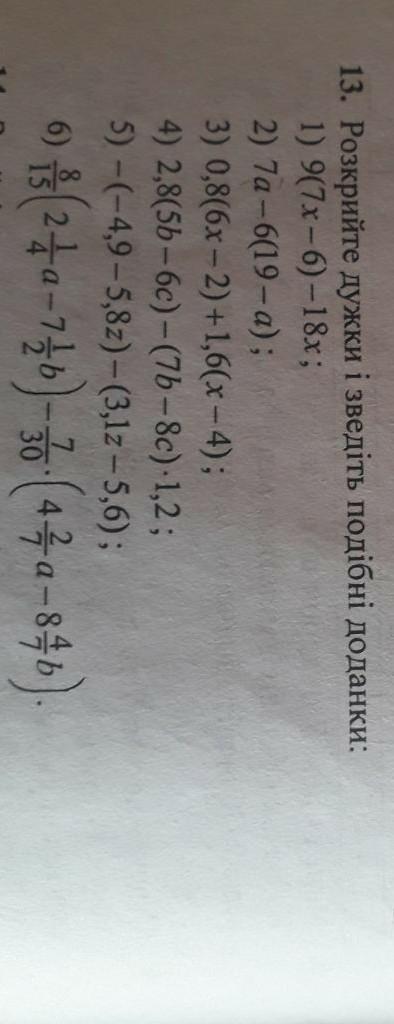 13. Розкрийте дужки і зведіть подібні доданки:
1) 9(7x – 6) – 18x;
2) 7a – 6(19 – a);
3) 0,8(6x – 2) + 1,6(x – 4);
4) 2,8(5b – 6c) – (7b – 8c) · 1,2;
5) –(–4,9 – 5,8z) – (3,1z – 5,6);
6) 8/15(2 1/4 a – 7 1/2 b) – 7/30 · (4 2/7 a – 8 4/7 b).